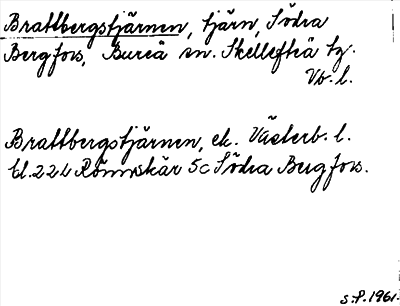 Brattbergstjärnen, tjärn, Södra
Bergfors, Bureå sn. Skellefteå tg.
Vb. l.
Brattbergstjärnen, ek. Västerb. l.
bl. 22 L Rönnskär 5c Södra Bergfors.
S.P. 1961.